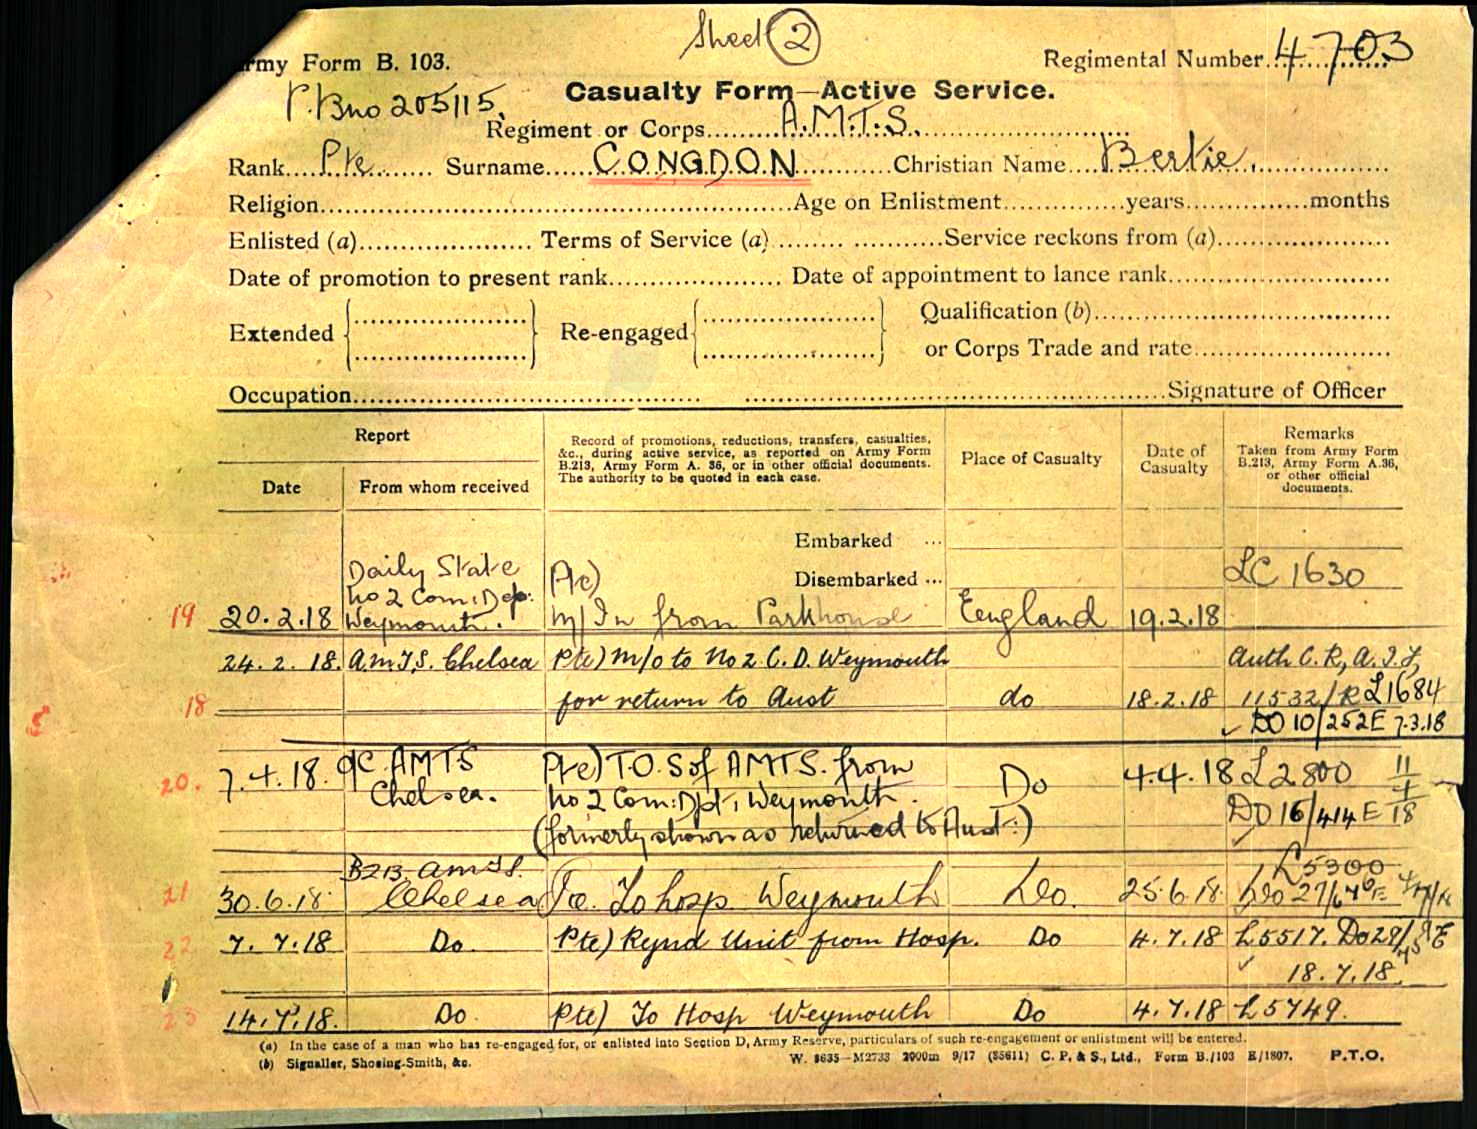 Sheet 2
Army Form B. 103.
Regimental Number 4703
P. Bno 205115
Casualty Form—Active Service.
Regiment or Corps A.M.T.S.
Rank Pte Surname CONGDON Christian Name Bertie
Religion Age on Enlistment years months
Enlisted (a) Terms of Service (a) Service reckons from (a)
Date of promotion to present rank Date of appointment to lance rank
Extended Re-engaged Qualification (b)
or Corps Trade and rate
Occupation Signature of Officer
Report
Date
From whom received
Record of promotions, reductions, transfers, casualties,
&c., during active service, as reported on Army Form
B.213, Army Form A. 36, or in other official documents.
The authority to be quoted in each case.
Place of Casualty
Date of
Casualty
Remarks
Taken from Army Form
B.213, Army Form A.36,
or other official
documents.
Embarked ...
Disembarked ...
Daily State Pte) LC 1630
No 2 Com: Dep:
19 20.2.18 Weymouth. M/In from Parkhouse England 19.2.18
24.2.18. A.M.T.S. Chelsea Pte) M/o to No 2 C.D. Weymouth Auth C.R, A.I.F,
18 for return to Aust do 18.2.18 11532/R L1684
DO 10/252E 7.3.18
20. 7.4.18. OC AMTS Pte) T.O.S of AMTS. from Do 4.4.18 L2800 11/4/18
Chelsea. No 2 Com: Dpt, Weymouth. DO 16/414 E
(formerly shown as returned to Aust:)
B213 AMTS. L5300
21 30.6.18 Chelsea Pte. To hosp Weymouth Do. 25.6.18 Do 27/
22 7.7.18 Do. Pte) Rejnd Unit from Hosp. Do 4.7.18 L5517. Do 29/
18.7.18.
23 14.7.18. Do. Pte) To Hosp Weymouth Do 4.7.18 L5749.
(a) In the case of a man who has re-engaged for, or enlisted into Section D, Army Reserve, particulars of such re-engagement or enlistment will be entered.
(b) Signaller, Shoeing-Smith, &c. W. 8635—M2733 2000m 9/17 (85611) C. P. & S., Ltd., Form B./103 E/1807. P.T.O.